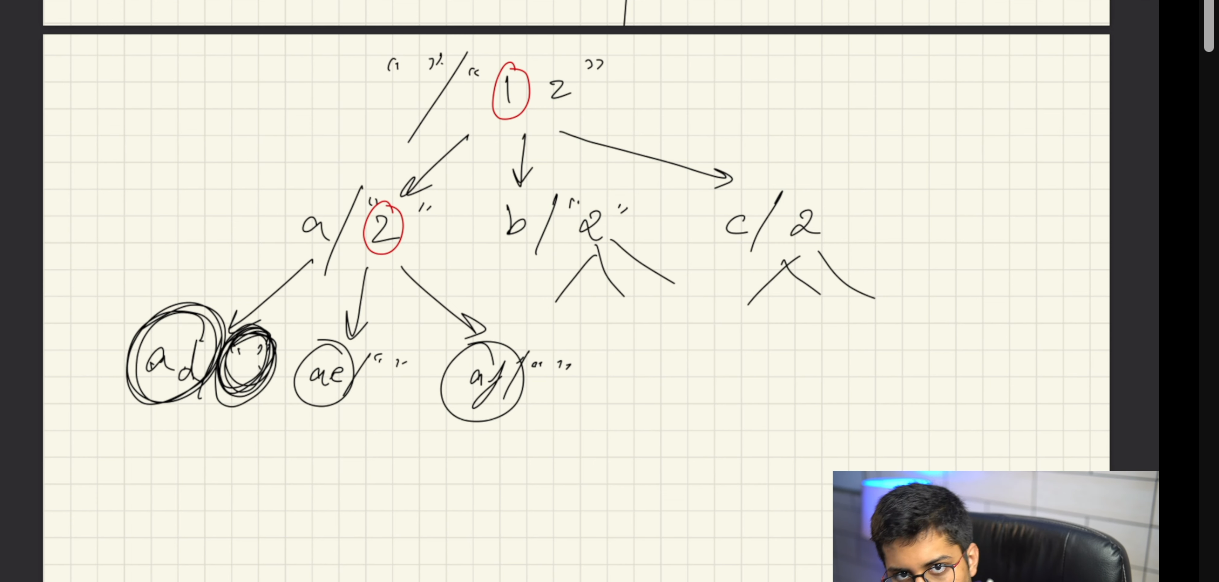 " " / " 1 2 "
a / " 2 " b / " 2 " c / 2
ad " " ae / " " af / " "